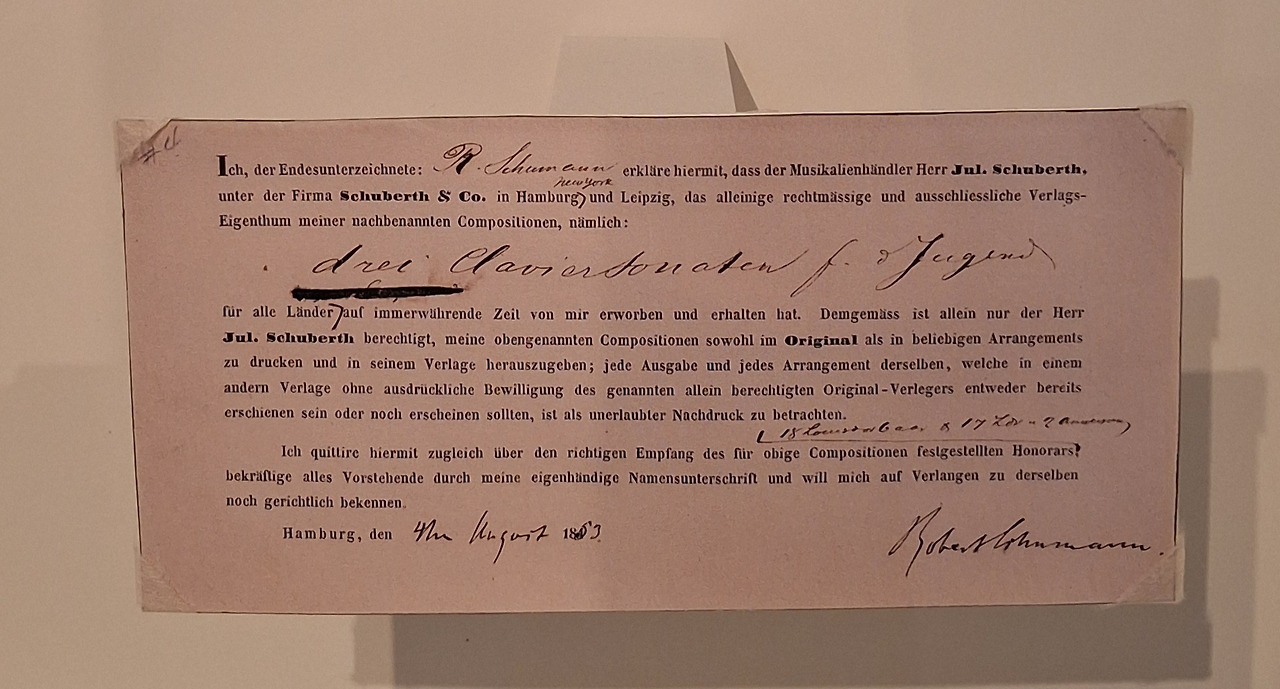 Ich, der Endesunterzeichnete: R. Schumann erkläre hiermit, dass der Musikalienhändler Herr Jul. Schuberth,
New York
unter der Firma Schuberth & Co. in Hamburg, und Leipzig, das alleinige rechtmässige und ausschliessliche Verlags-
Eigenthum meiner nachbenannten Compositionen, nämlich:
drei Claviersonaten f. d Jugend
für alle Länder, auf immerwährende Zeit von mir erworben und erhalten hat. Demgemäss ist allein nur der Herr
Jul. Schuberth berechtigt, meine obengenannten Compositionen sowohl im Original als in beliebigen Arrangements
zu drucken und in seinem Verlage herauszugeben; jede Ausgabe und jedes Arrangement derselben, welche in einem
andern Verlage ohne ausdrückliche Bewilligung des genannten allein berechtigten Original-Verlegers entweder bereits
erschienen sein oder noch erscheinen sollten, ist als unerlaubter Nachdruck zu betrachten.
18 17
Ich quittire hiermit zugleich über den richtigen Empfang des für obige Compositionen festgestellten Honorars,
bekräftige alles Vorstehende durch meine eigenhändige Namensunterschrift und will mich auf Verlangen zu derselben
noch gerichtlich bekennen.
Hamburg, den 4ten August 1853.
Robert Schumann.